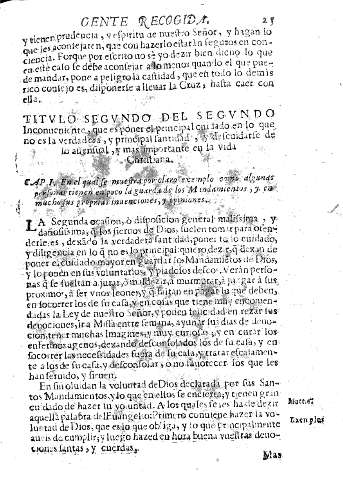 GENTE RECOGIDA. 25
y tienen prudencia, y espiritu de nuestro Señor, y hagan lo
que les aconsejaren, que con hazerlo estarán seguros en con-
ciencia. Porque por escrito no sè yo dezir bien dicho lo que
en este caso se debe aconsejar a lo menos quando el que pue-
de mandar, pone a peligro la castidad, que en todo lo demàs
rico consejo es, disponerse a llevar la Cruz, hasta caer con
ella.
TITVLO SEGVNDO DEL SEGVNDO
Inconveniente, que es poner el principal cuidado en lo que
no es la verdadera, y principal santidad, y descuidarse de
lo essencial, y mas importante en la vida
Christiana.
CAP I. En el qual se muestra por claro exemplo como algunas
personas tienen en poco la guarda de los Mandamientos, y en
mucho sus proprias invenciones, y opiniones.
LA Segunda ocasion, ò disposicion general malissima, y
dañosissima, q̃ los siervos de Dios, suelen tomar para ofen-
derle, es, dexãdo la verdadera santidad, poner to lo cuidado,
y diligencia en lo q̃ no es lo principal: quiero dezir, q̃ dexan de
poner el cuidado mayor en guardar los Mandamiẽtos de Dios,
y lo ponen en sus voluntarios, y piadosos deseos. Verán perso-
nas q̃ se sueltan a jurar, a maldezir, a murmurar, a juzgar a sus
proximos, a ser vnos leones, y q̃ faltan en pagar lo que deben,
en socorrer los de su casa, y en cosas que tiene muy encomen-
dadas la Ley de nuestro Señor, y ponen felicidad en rezar tres
devociones, ir a Missa entre semana, ayunar sus dias de devo-
cion, tener muchas Imagenes, y muy curiosas, y en curar los
enfermos agenos, dexando desconsolados los de su casa, y en
socorrer las necessidades fuera de su casa, y tratar escasamente
a los de su casa, y desconsolar, o no favorecer los que les
han servido, y sirven.
En su olvidan la voluntad de Dios declarada por sus San-
tos Mandamientos, y lo que en ellos se encierra, y tienen gran
cuidado de hazer su voluntad. A los quales se les ha de dezir
aquella palabra del Evangelio: Primero conviene hazer la vo-
luntad de Dios, que es lo que obliga, y lo que principalmente
aveis de cumplir, y luego hazed en hora buena vuestras devo-
ciones santas, y cuerdas.
Matt. 7
Exemplos
Mas